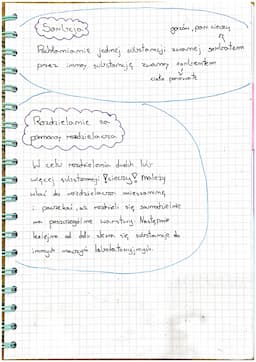 Sorbcja
gazów, par, cieczy
Pochłanianie jednej substancji zwanej sorbatem
przez inną substancję zwaną sorbentem
ciała porowate
Rozdzielanie za
pomocą rozdzielacza
W celu rozdzielenia dwóch lub
więcej substancji !cieczy! należy
wlać do rozdzielacza mieszaninę
i poczekać, aż rozdzieli się samodzielnie
na poszczególne warstwy. Następnie
kolejno od dołu zlewa się substancje do
innych naczyń laboratoryjnych.